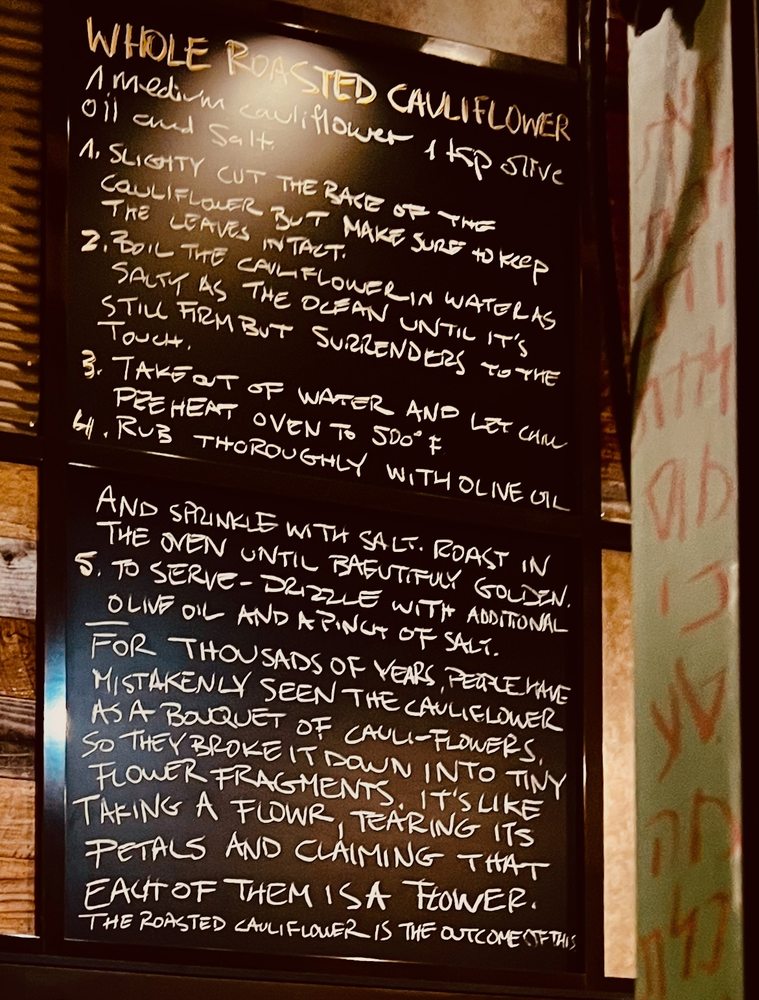 WHOLE ROASTED CAULIFLOWER
1. medium cauliflower 1 tsp olive
oil and Salt.
1. SLIGHTY CUT THE BASE OF THE
CAULIFLOWER BUT MAKE SURE TO KEEP
THE LEAVES INTACT.
2. BOIL THE CAULIFLOWER IN WATER AS
SALTY AS THE OCEAN UNTIL IT'S
STILL FIRM BUT SURRENDERS TO THE
TOUCH.
3. TAKE OUT OF WATER AND LET CHILL
PREHEAT OVEN TO 500°F
4. RUB THOROUGHLY WITH OLIVE OIL
AND SPRINKLE WITH SALT. ROAST IN
THE OVEN UNTIL BAEUTIFULY GOLDEN.
5. TO SERVE - DRIZZLE WITH ADDITIONAL
OLIVE OIL AND A PINCH OF SALT.
FOR THOUSADS OF YEARS, PEOPLE HAVE
MISTAKENLY SEEN THE CAULIFLOWER
AS A BOUQUET OF CAULI-FLOWERS,
SO THEY BROKE IT DOWN INTO TINY
FLOWER FRAGMENTS. IT'S LIKE
TAKING A FLOWR, TEARING ITS
PETALS AND CLAIMING THAT
EACH OF THEM IS A FLOWER.
THE ROASTED CAULIFLOWER IS THE OUTCOME OF THIS